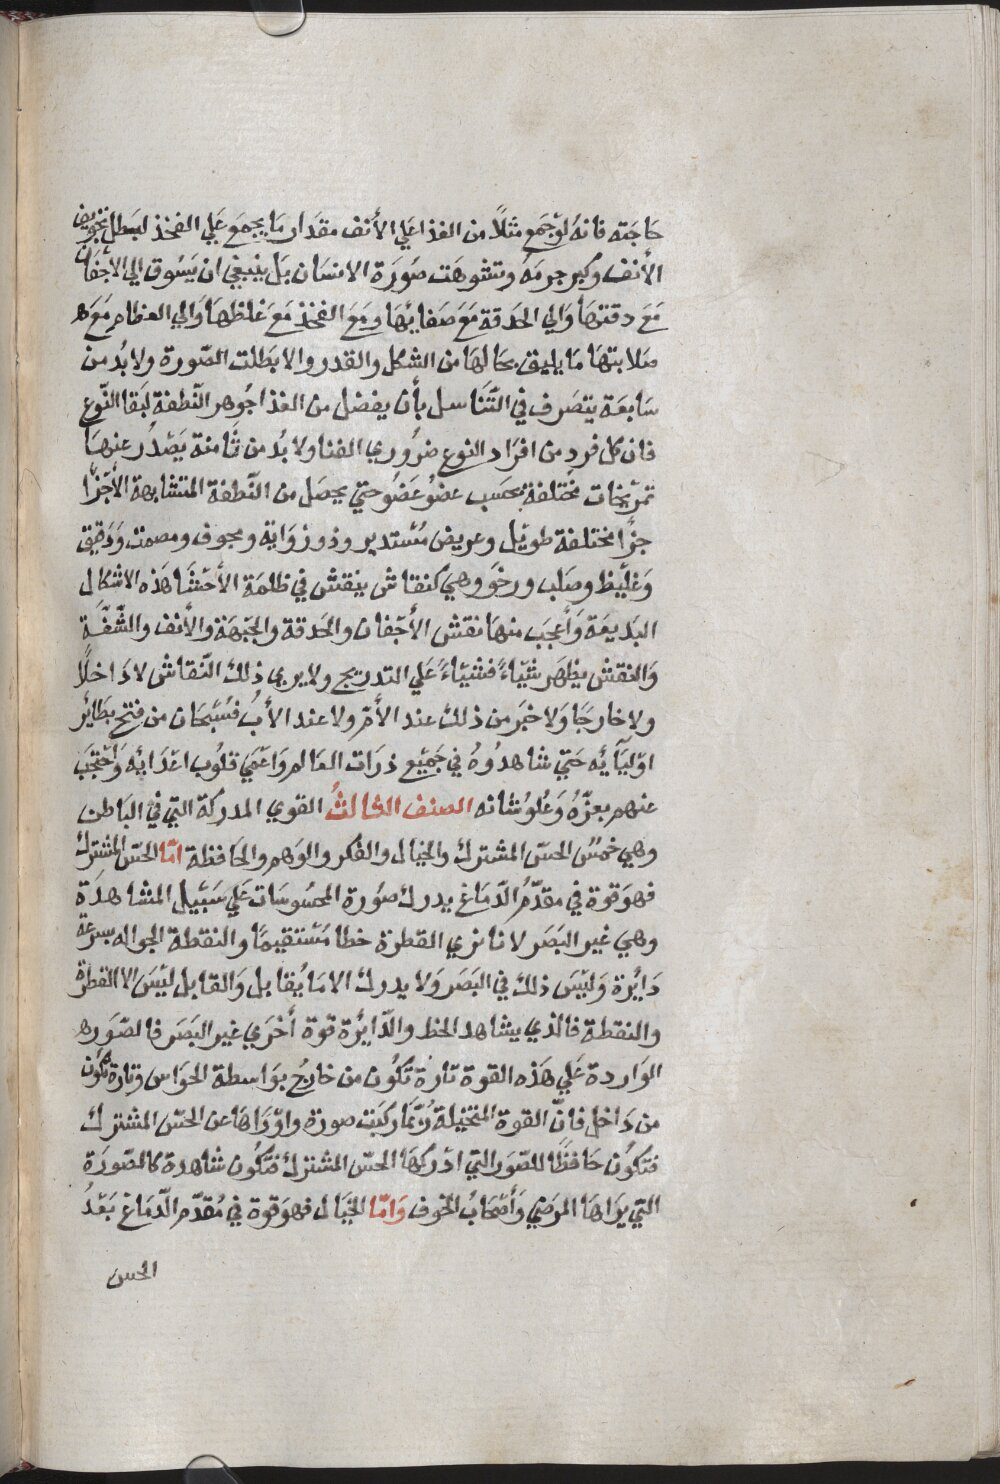 حَاجَته فانهُ لوْجَمع مثلاً من الغذا علي الأنف مقدَار مَا يجمَع عَلي الفخذ لبَطل تجويف
الأنف وكبر جرمَهُ وتشوهَت صوَرة الانسَان بَل ينبغي ان يَسُوق الي الأجْفَان
مَعَ دقتهَا وَالي الحَدقة مَعَ صَفائهَا ومَعَ الفخذ مَعَ غلظهَا وَالي العظام مَعَ
صَلابتهَا مَا يليق بحالهَا من الشكل والقدر والا بَطلت الصّورة ولا بُد من
سَابعَة يتصَرف في التّنَاسل بأن يفضل من الغذا جُوهر النّطفة لبَقا النّوع
فان كل فردٍ من افرَاد النوع ضرُوري الفنا ولا بُد من ثَامنة يَصْدُر عنهَا
تمزيجَات مختلفة بحسَب عضوُ عَضوُ حتي يحصَل من النّطفة المتشابهة الأجَزْا
جزْا مختلفة طوَيل وعريض مُسْتدير وذو زوَاية ومجوف ومصمت وَدَقيق
وَغليظ وصَلب ورخوَ وهي كنقاش ينقش في ظلمَة الأحشَا هَذه الاشكال
البَديعَة وَأعجَب منهَا نقش الأجْفان والحَدقة والجَبَهَة والأنف والشّفَة
وَالنقش يظهَر شيْاءً فشيْاءً عَلي التدريج ولا يري ذلك النّقاش لا دَاخلاً
ولا خارجَا وَلا خبَر من ذلك عند الأمّ ولا عند الأبُ فسُبْحَان من فتح بصَائر
اوليَآئه حَتي شاهدُوهُ في جَميْع ذرَات العَالم وَاعْمَي قلُوب اعْدَائه وَاحْتجَبَ
عنهم بعزّهُ وَعُلوُشانه الصنف الثالثُ القوي المدركة التي في البَاطن
وهي خمسُ الحسّ المشترك والخيال والفكر والوَهم والحَافظة امّا الحسّ المشترك
فهوَ قوة في مقدّم الدّمَاغ يدرك صُورة المحسُوسَات عَلي سَبْيل المشاهدَة
وهي غير البَصَر لاننا نري القطرة خطا مسْتقيمَا والنقطة الجوالة بسرعة
دَائرة وَليْسَ ذلك في البَصَر وَلا يدرك الا مَا يُقابل وَالمقابل ليْسَ الا القطرَة
والنقطة فالذي يشاهد الخط والدّائرة قوة أخرَي غير البَصَر فالصّوَره
الوَاردة عَلي هَذه القوة تارة تكُون من خارجُ بوَاسطة الحوَاس وتارة تكون
من دَاخل فانّ القوة المتخيلة رُبّمَا ركبَت صورة واوْرَاهَا عن الحسّ المشترك
فتكوُن حَافظًا للصّوَر التي ادْركهَا الحسّ المشترك فتكُون شاهدة كالصّورَة
التي يرَاهَا المرَضي وَأصْحَابُ الخوف وَامّا الخيَال فهوَ قوة في مُقدّم الدّمَاغ بَعْدُ
الحس